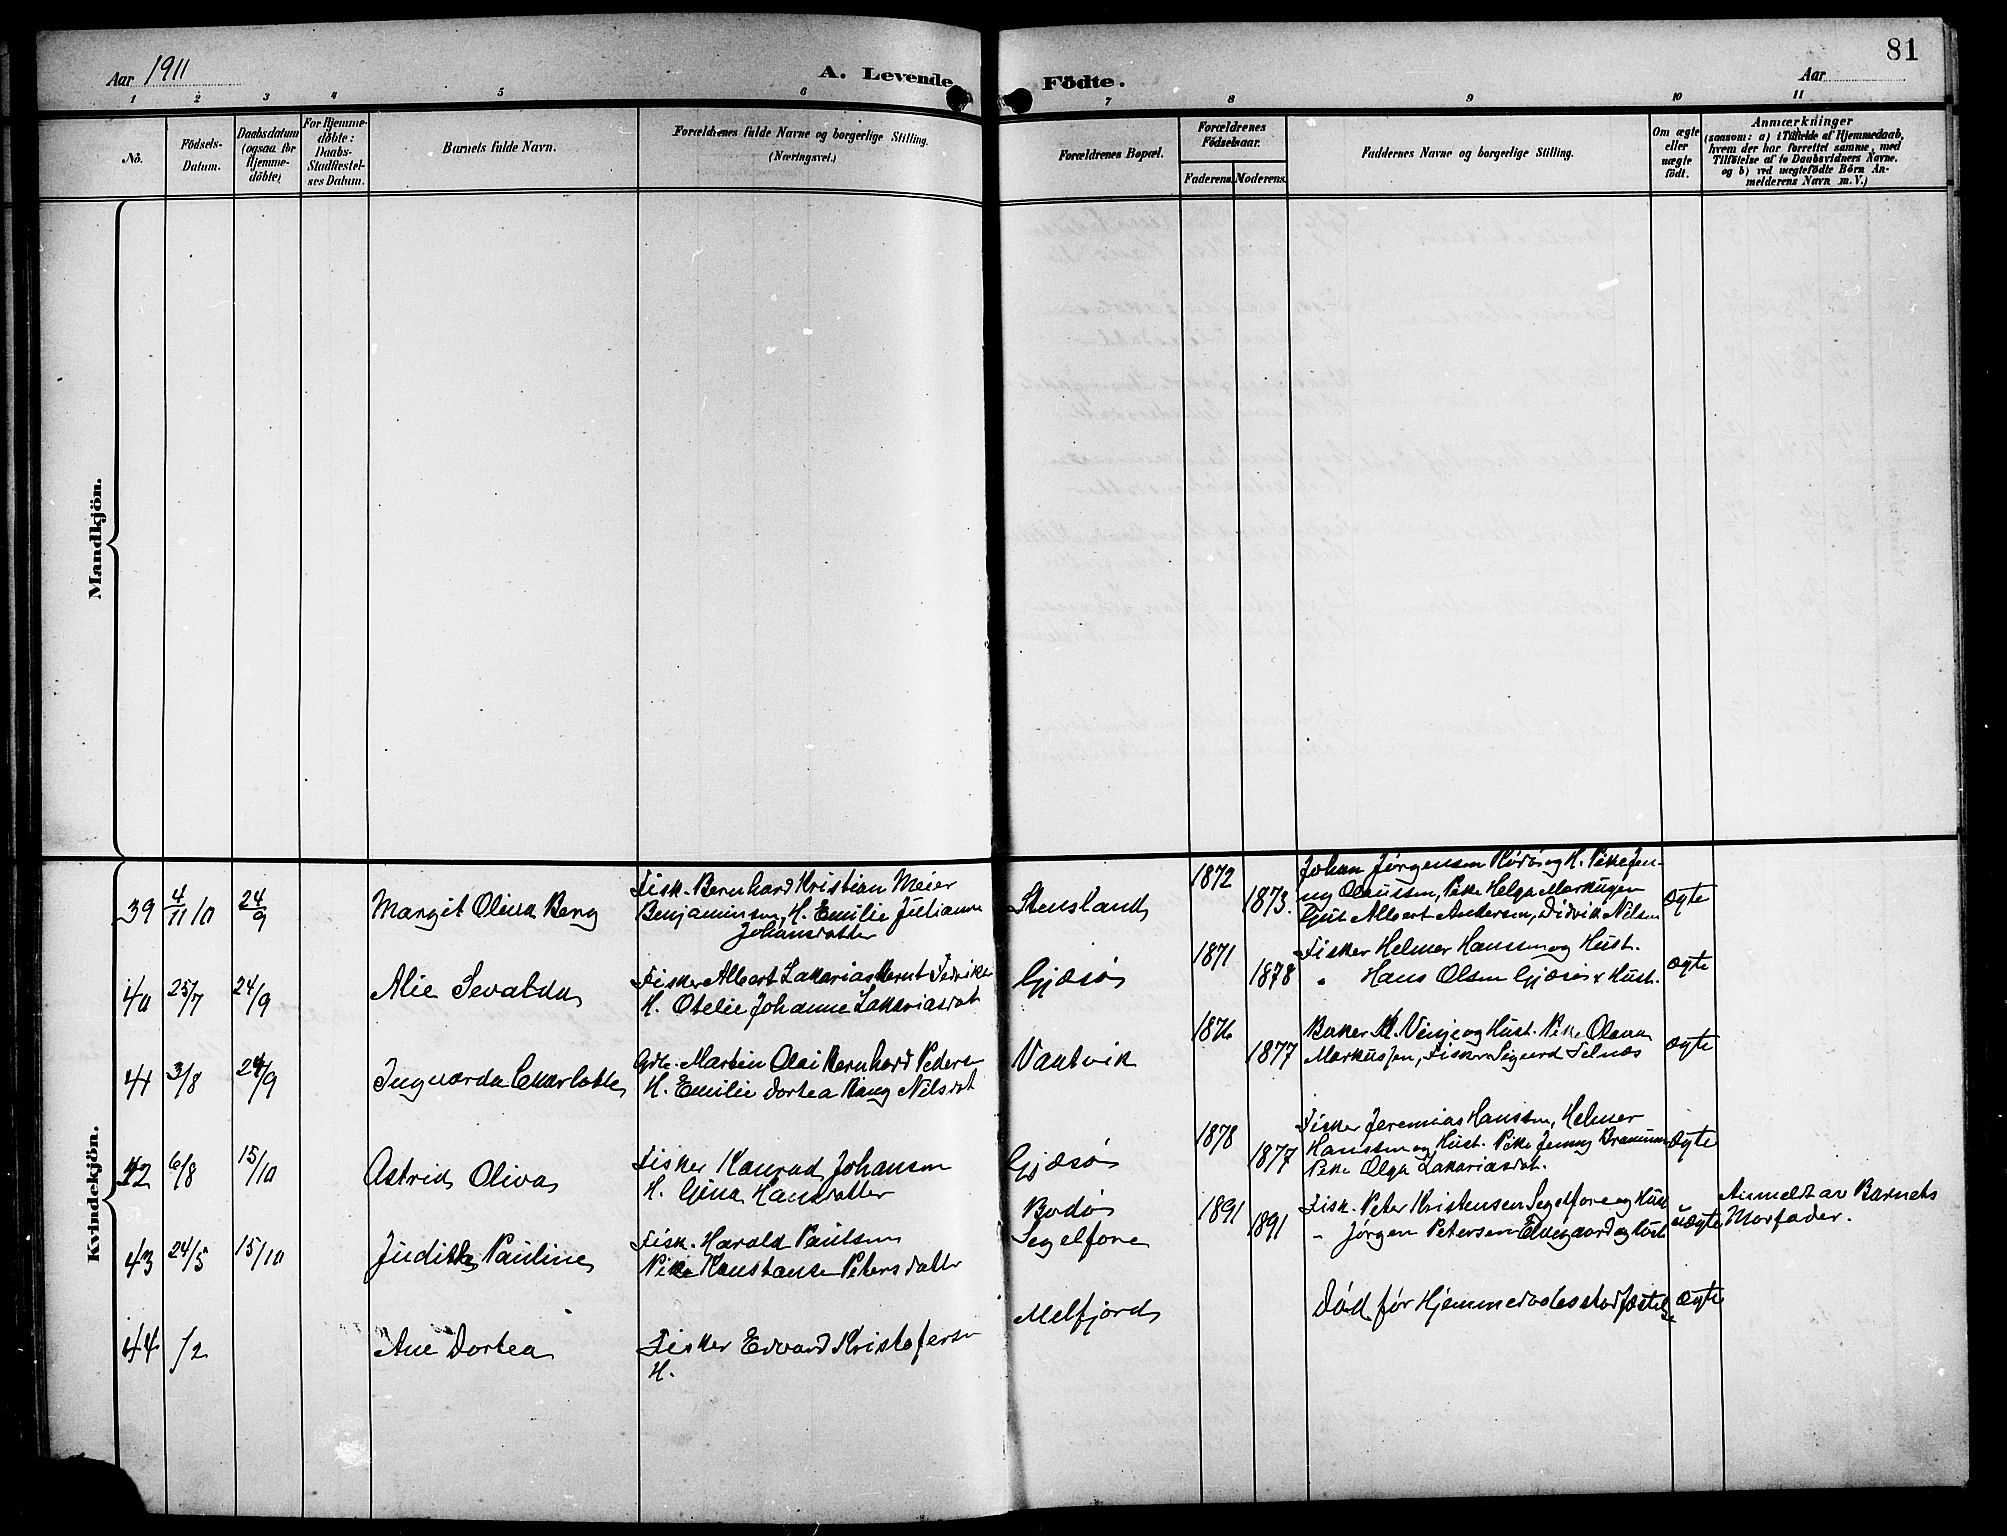 81
Aar 1911
A. Levende
Födte.
Aar
1 2 3 4 5 6 7 8 9 10 11
No.
Födsels-
Datum.
Daabsdatum
(ogsaa for
Hjemme-
döbte)
For Hjemme-
döbte:
Daabs-
Stadfæstel-
ses Datum.
Barnets fulde Navn.
Forældrenes fulde Navne og borgerlige Stilling.
(Næringsvei.)
Forældrenes Bopæl.
Forældrenes
Födselsaar.
Faderens.
Moderens.
Faddernes Navne og borgerlige Stilling.
Om ægte
eller
uægte
födt.
Anmærkninger
(saasom: a) i Tilfælde af Hjemmedaab,
hvem der har forrettet samme, med
Tilföielse af to Daabsvidners Navne.
og b) ved uægtefödte Börn An-
melderens Navn m. V.)
Mandkjön.
Kvindekjön.
39 4/11 10 24/9 Margit Olina Berg
Fisk. Bernhard Kristian Meier
Benjaminsen, H. Emilie Julianne
Johansdatter
Stensland
1872
1873.
Johan Jørgensen og H. Pike Jen-
ny Olaussen, Pike Helga Markusen
Gut Albert Andersen, Didvik Nilsen
ægte
40 25/7 24/9 Alie Sevalda
Fisker Albert Zakarias Bernt Fedrikse
H. Otelie Johanne Zakariasdat
Gjæsø
1871
1878
Fisker Helmer Hanssen og Hust.
" Hans Olsen Gjæsø & Hust.
ægte
41 3/8 24/9 Ingvarda Charlotte
Gdb. Martin Olai Bernhard Peders
H. Emilie Dortea Bang Nilsdat
Vantvik
1876
1877
Baker M. Vinje og Hust. Pike Olava
Markussen, Fisker Sigurd Selnæs
ægte
42 6/8 15/10 Astrid Oliva
Fisker Konrad Johansen
H. Gina Hansdatter
Gjæsø
1878
1877
Fisker Jeremias Hanssen, Helmer
Hanssen og Hust. Pike Jenny
Pike Olga Zakariasdat.
ægte
43 24/5 15/10 Judith Pauline
Fisk. Harald Paulsen
Pike Konstanse Petersdattr
Bodø
Segelfore
1891
1891
Fisk. Peter Kristensen Segelfore og Hust
" Jørgen Petersen Elvegaard og Hust
uægte
Anmeldt av Barnets
Morfader.
44 /2 Ane Dortea
Fisker Edvard Kristofersen
H.
Melfjord
Død før Hjemmedaabsstadfæstelse
ægte